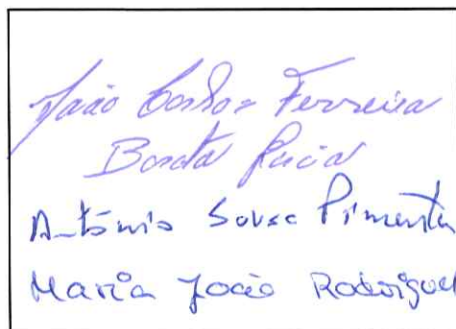 João Carlos Ferreira
Lúcia
António Sousa Pimenta
Maria João Rodrigues